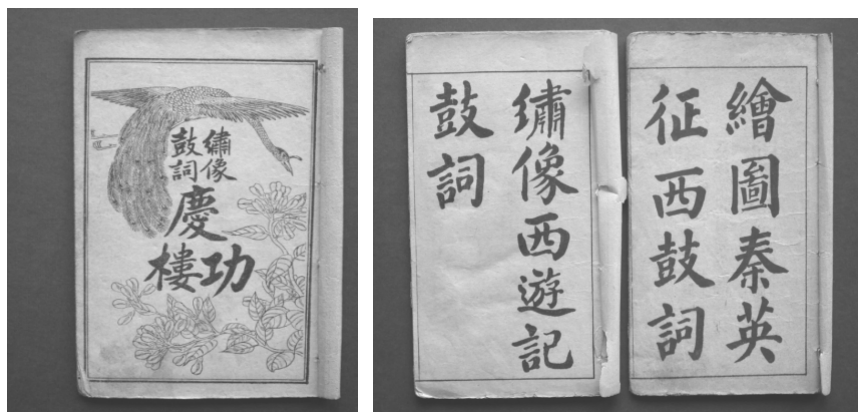 繡像
鼓詞
慶功樓
繡像西遊記
鼓詞
繪圖秦英
征西鼓詞